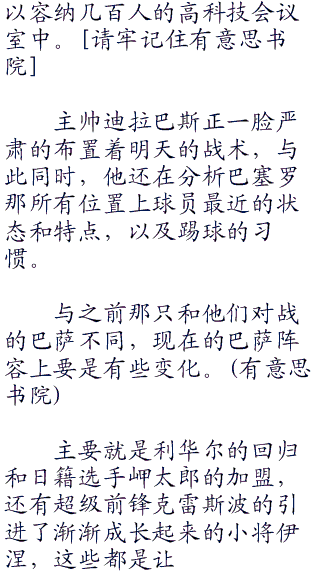 以容纳几百人的高科技会议
室中。[请牢记住有意思书
院]
主帅迪拉巴斯正一脸严
肃的布置着明天的战术，与
此同时，他还在分析巴塞罗
那所有位置上球员最近的状
态和特点，以及踢球的习
惯。
与之前那只和他们对战
的巴萨不同，现在的巴萨阵
容上要是有些变化。(有意思
书院)
主要就是利华尔的回归
和日籍选手岬太郎的加盟，
还有超级前锋克雷斯波的引
进了渐渐成长起来的小将伊
涅，这些都是让